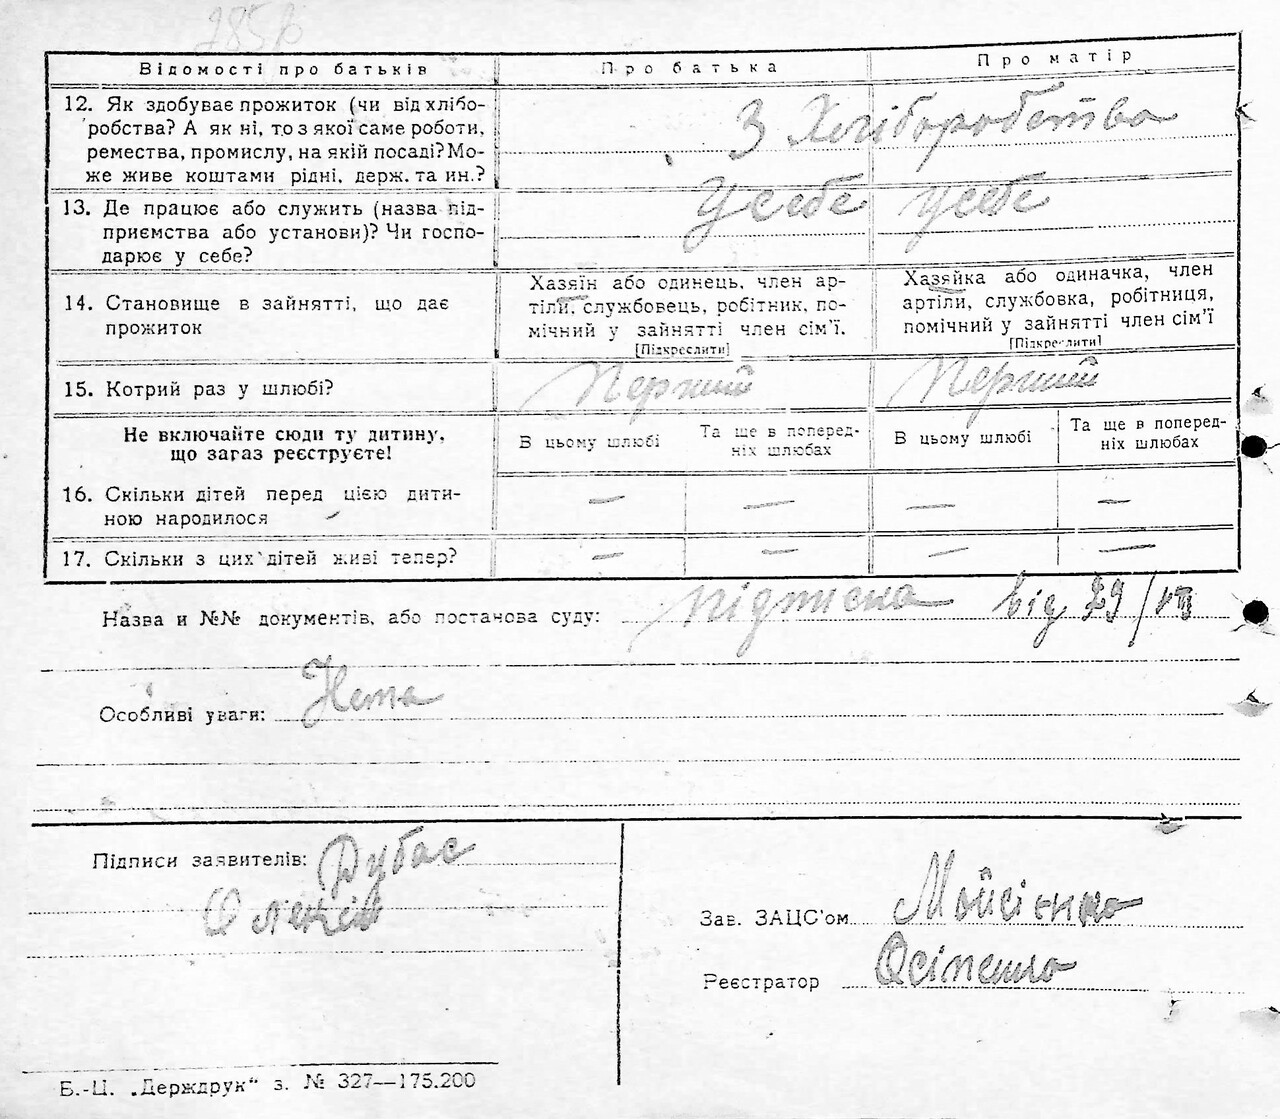 285б
Відомості про батьків
Про батька
Про матір
12. Як здобуває прожиток (чи від хлібо-
робства? А як ні, то з якої саме роботи,
ремества, промислу, на якій посаді? Мо-
же живе коштами рідні, держ. та ин.?
З Хліборобства
13. Де працює або служить (назва під-
приємства або установи)? Чи госпо-
дарює у себе?
У себе
У себе
14. Становище в зайнятті, що дає
прожиток
Хазяїн або одинець, член ар-
тіли, службовець, робітник, по-
мічний у зайнятті член сім'ї.
[Підкреслити]
Хазяйка або одиначка, член
артіли, службовка, робітниця,
помічний у зайнятті член сім'ї
[Підкреслити]
15. Котрий раз у шлюбі?
Перший
Перший
Не включайте сюди ту дитину,
що загаз реєструєте!
В цьому шлюбі
Та ще в поперед-
ніх шлюбах
В цьому шлюбі
Та ще в поперед-
ніх шлюбах
16. Скільки дітей перед цією дити-
ною народилося
— — — —
17. Скільки з цих дітей живі тепер?
— — — —
Назва и №№ документів, або постанова суду: підписка від 29/
Особливі уваги: Нема
Підписи заявителів: Рубас
Олексій
Зав. ЗАЦС'ом Мойсієнко
Реєстратор
Б.-Ц. „Держдрук“ з. № 327—175.200